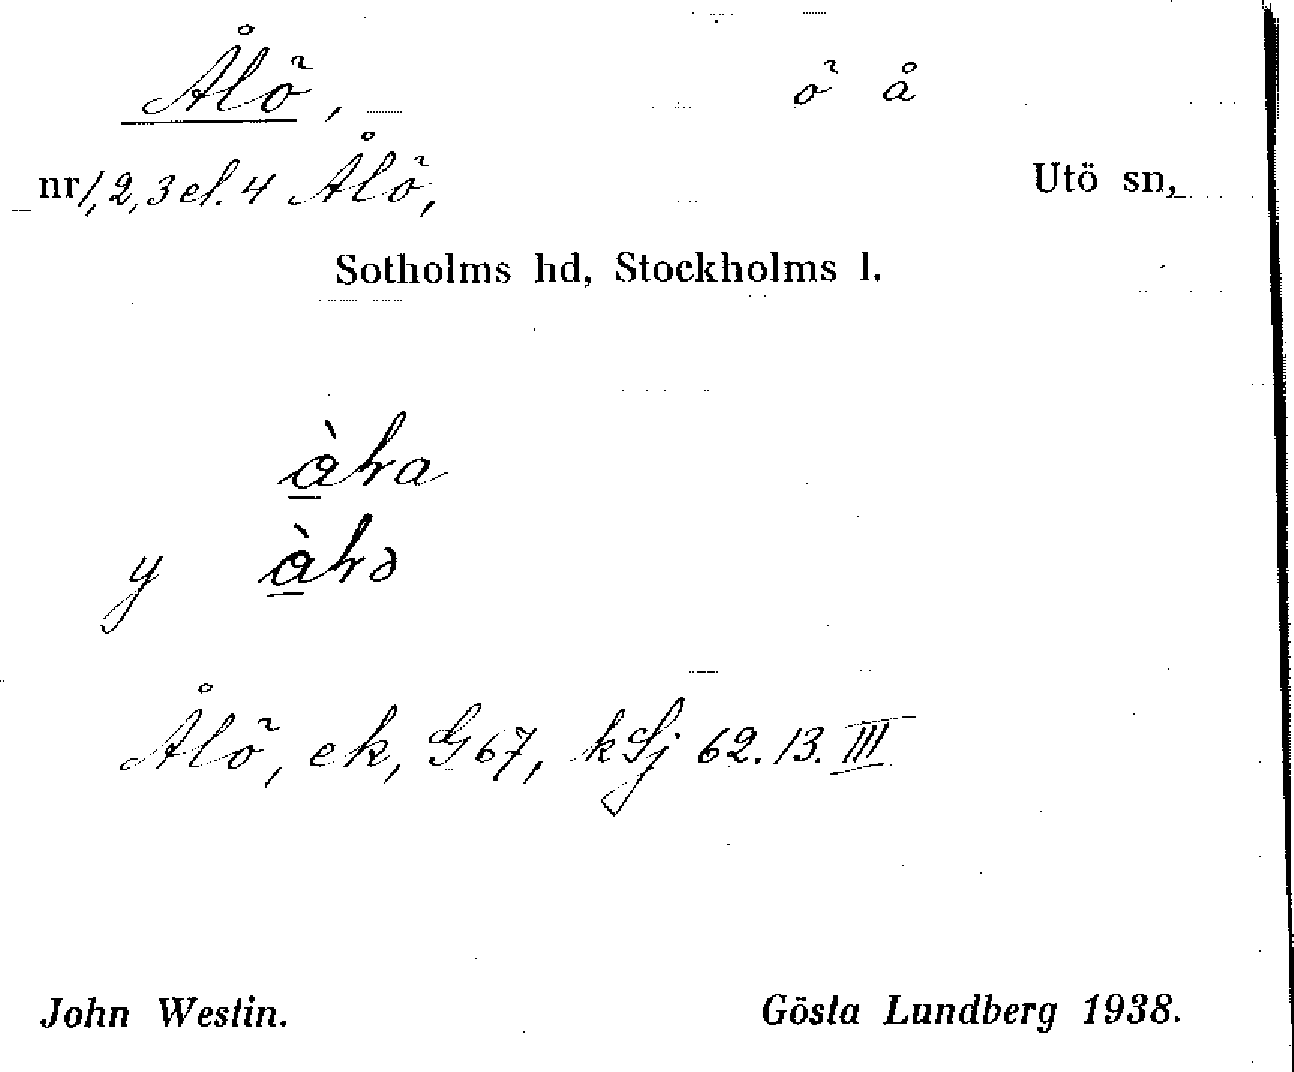 Ålö, ö å
nr 1, 2, 3 el. 4 Ålö, Utö sn,
Sotholms hd, Stockholms l.
y
Ålö, ek, G 67, kSj 62.13.III
John Westin. Gösta Lundberg 1938.